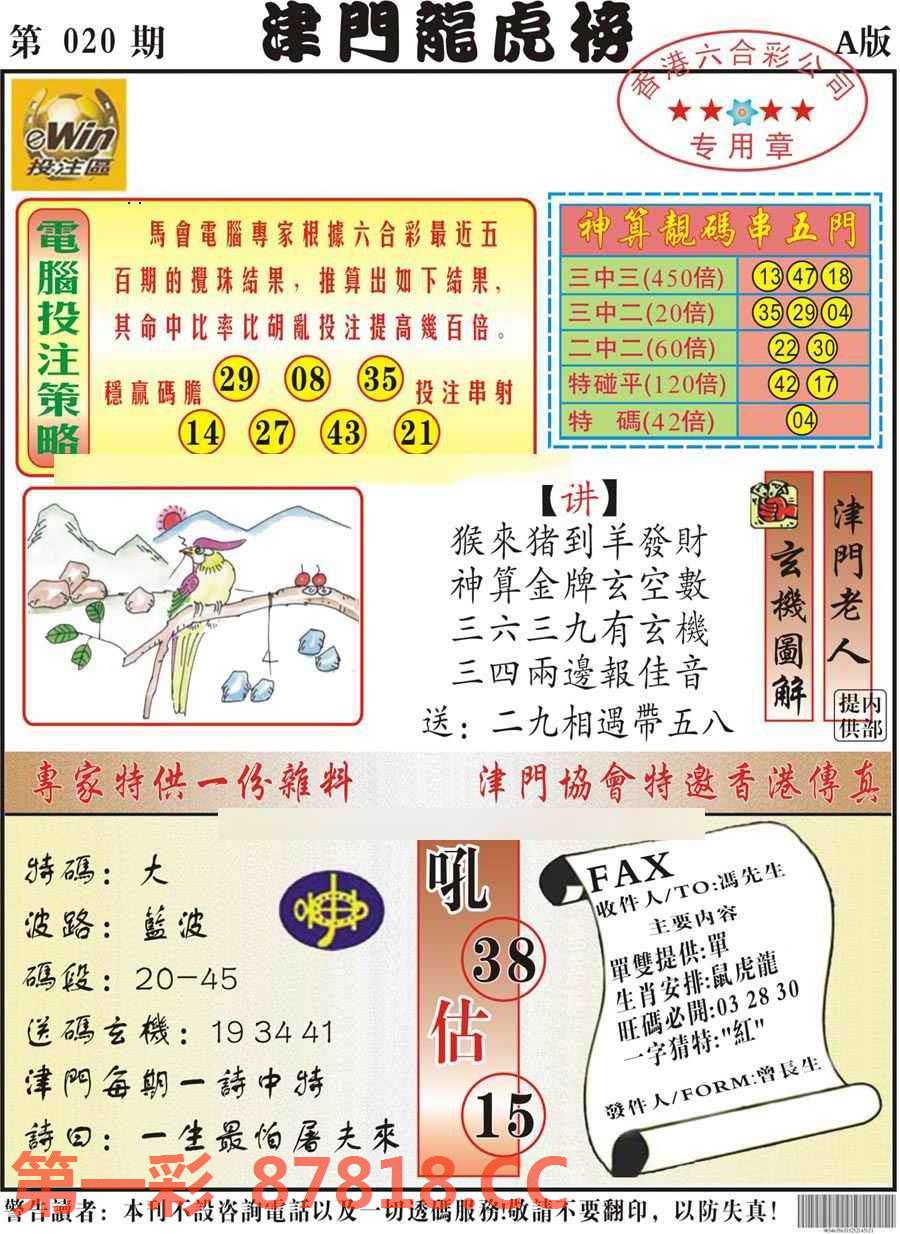 第 020 期
津門龍虎榜
A版
香港六合彩公司
专用章
eWin
投注區
電腦投注策略
馬會電腦專家根據六合彩最近五
百期的攪珠結果，推算出如下結果，
其命中比率比胡亂投注提高幾百倍。
穩贏碼膽 29 08 35 投注串射
14 27 43 21
神算靚碼串五門
三中三(450倍) 13 47 18
三中二(20倍) 35 29 04
二中二(60倍) 22 30
特碰平(120倍) 42 17
特 碼(42倍) 04
【讲】
猴來猪到羊發財
神算金牌玄空數
三六三九有玄機
三四兩邊報佳音
送：二九相遇帶五八
玄機圖解
津門老人
内部提供
專家特供一份雜料
津門協會特邀香港傳真
特碼：大
波路：藍波
碼段：20-45
送碼玄機：19 34 41
津門每期一詩中特
詩曰：一生最怕屠夫來
吼
38
估
15
FAX
收件人/TO:馮先生
主要内容
單雙提供:單
生肖安排:鼠虎龍
旺碼必開:03 28 30
一字猜特:"紅"
發件人/FORM:曾長生
第一彩 87818.CC
警告讀者：本刊不設咨詢電話以及一切透碼服務!敬請不要翻印，以防失真!